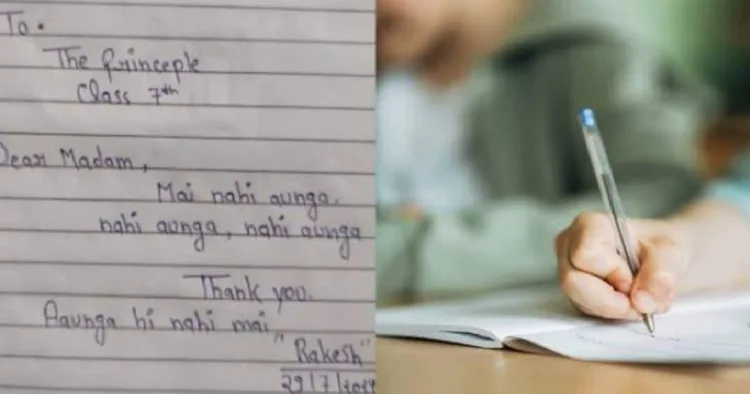 To.
The Princeple
Class 7th
Dear Madam,
Mai nahi aunga,
nahi aunga, nahi aunga
Thank you.
Aaunga hi nahi mai
"Rakesh"
29/7/2024